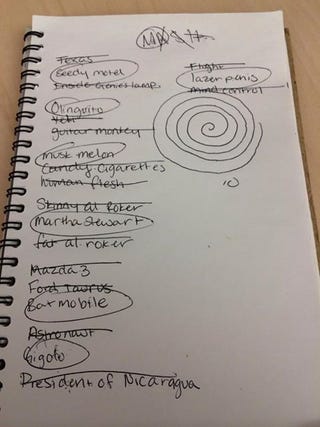 MASH
Texas
Seedy motel
Inside Genies lamp
Flight
lazer penis
mind control
Olinguito
Yeti
guitar monkey
musk melon
Candy Cigarettes
human flesh
10
Skinny al Roker
Martha Stewart
fat al roker
Mazda 3
Ford Taurus
Batmobile
Astronaut
Gigolo
President of Nicaragua